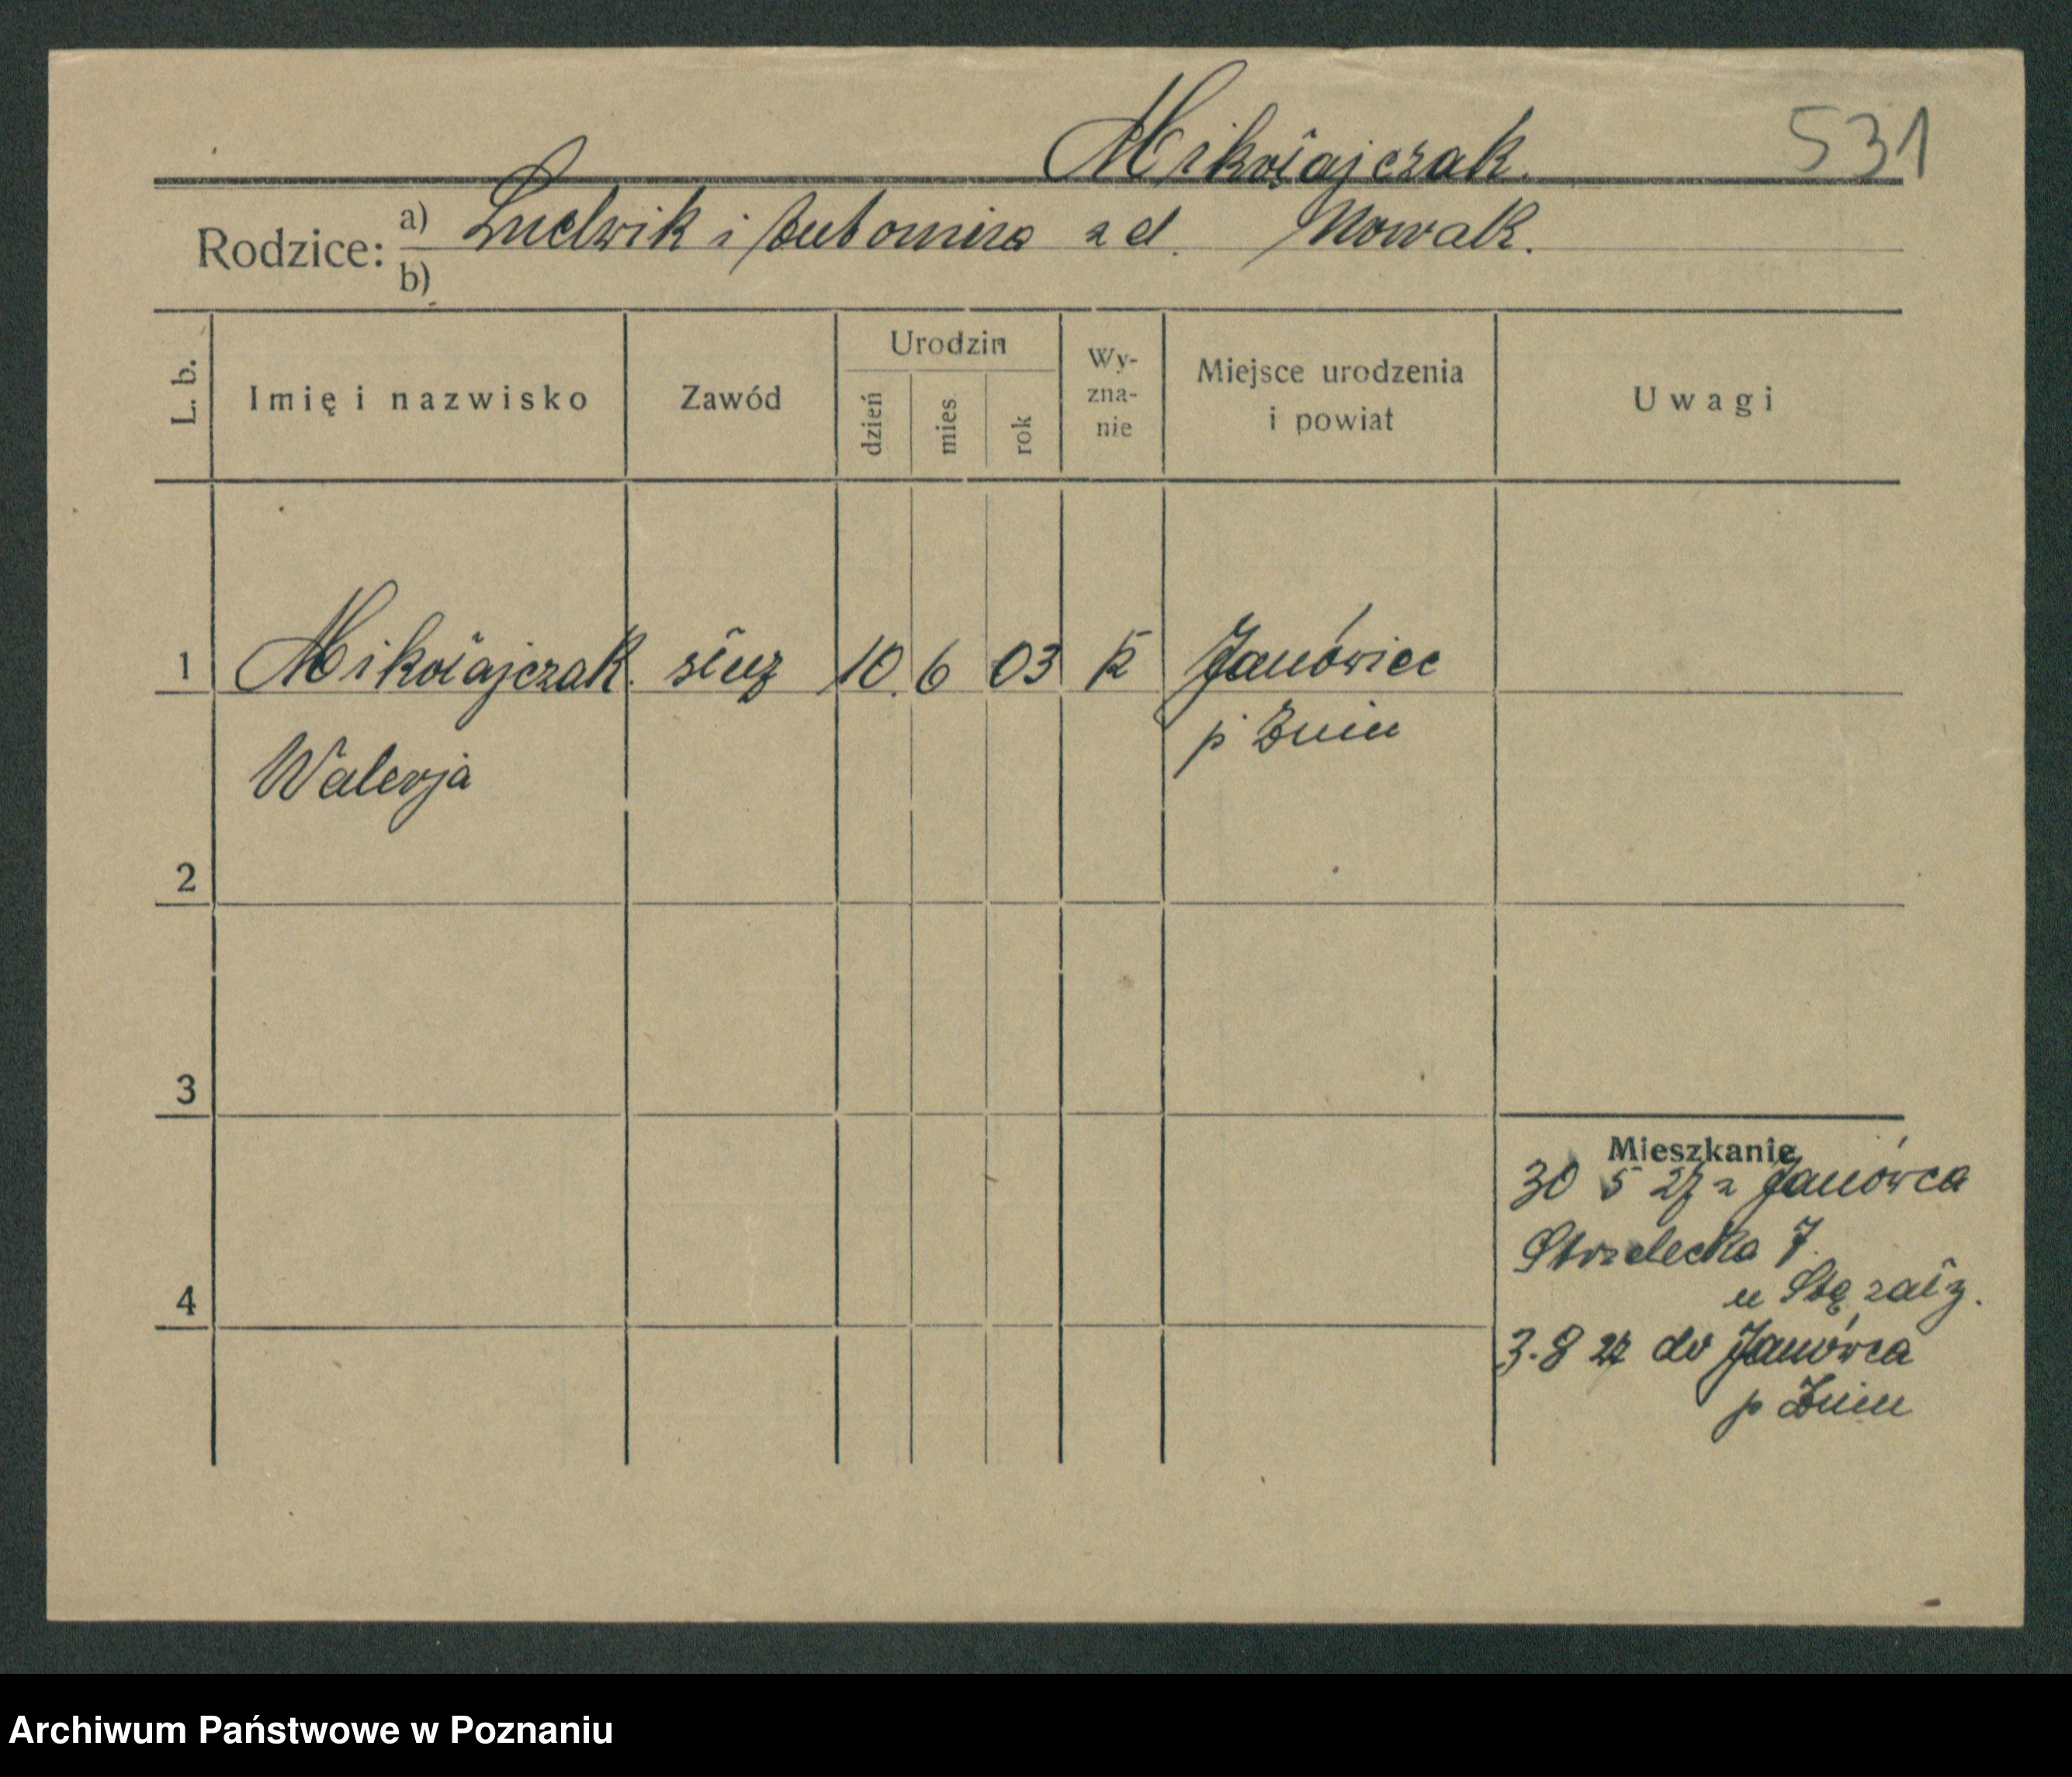 Mikołajczak. 531
Rodzice: a) Ludwik i Lubomira z d. Nowak.
b)
L. b. Imię i nazwisko Zawód Urodzin dzień mies. rok Wy-zna-nie Miejsce urodzenia i powiat Uwagi
1 Mikołajczak. służ 10. 6 03 k Janówiec
p Żnin
Walerja
2
3
Mieszkanie
30 5 27 z Janówca
Strzelecka 7.
4
3.8 27 do Janówca
p Żnin
Archiwum Państwowe w Poznaniu